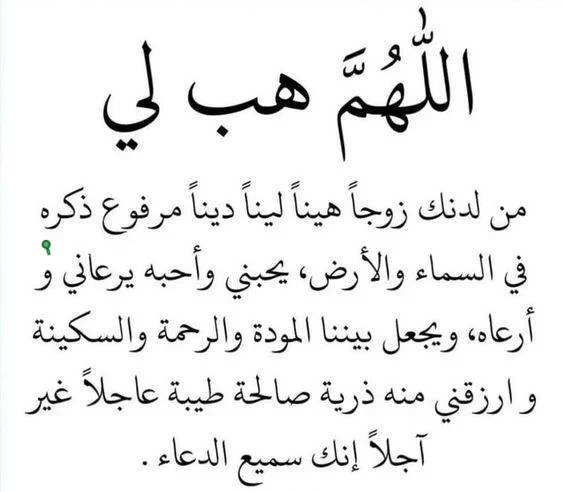 اللّٰهُمَّ هب لي
من لدنك زوجاً هيناً ليناً ديناً مرفوع ذكره
في السماء والأرض، يحبني وأحبه يرعاني و
أرعاه، ويجعل بيننا المودة والرحمة والسكينة
و ارزقني منه ذرية صالحة طيبة عاجلاً غير
آجلاً إنك سميع الدعاء .